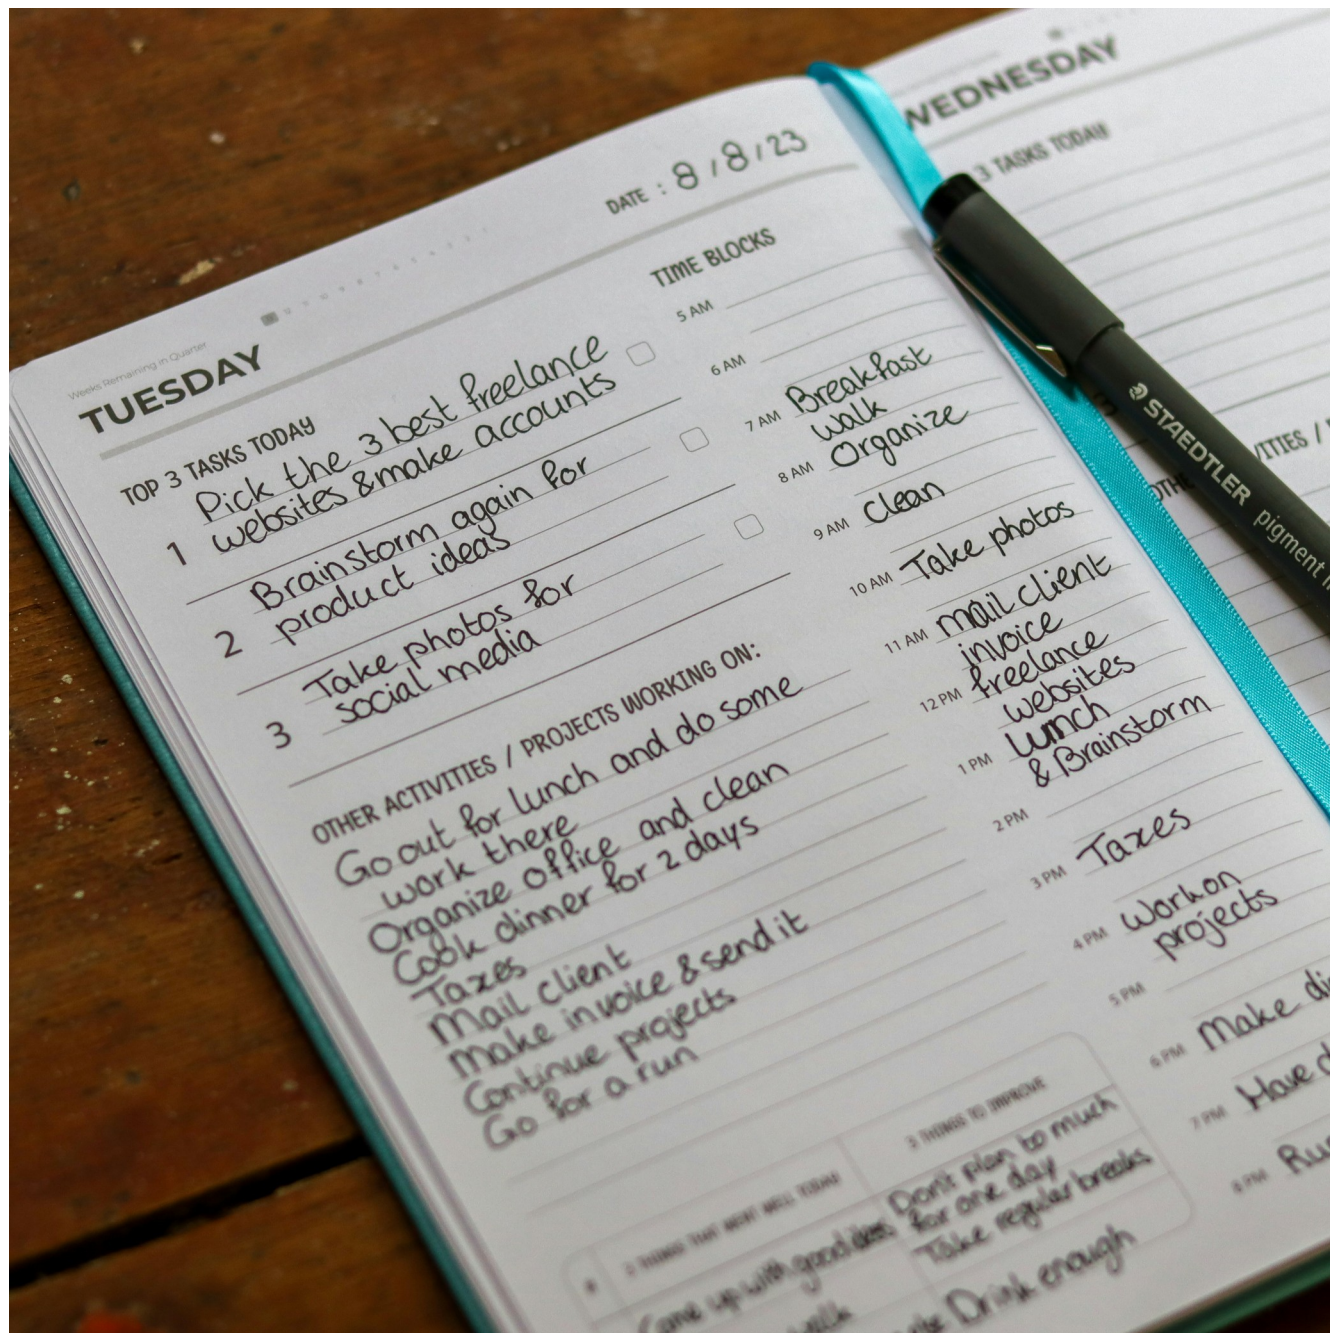 Weeks Remaining in Quarter
TUESDAY
DATE : 8/8/23
TOP 3 TASKS TODAY
Pick the 3 best freelance
1 websites & make accounts
Brainstorm again for
2 product ideas
Take photos for
3 social media
OTHER ACTIVITIES / PROJECTS WORKING ON:
Go out for lunch and do some
work there
Organize office and clean
Cook dinner for 2 days
Taxes
Mail client
Make invoice & send it
Continue projects
Go for a run
TIME BLOCKS
5 AM
6 AM
7 AM Breakfast
walk
8 AM Organize
9 AM Clean
10 AM Take photos
11 AM Mail client
invoice
12 PM freelance
websites
1 PM lunch
& Brainstorm
2 PM
3 PM Taxes
4 PM Work on
projects
5 PM
6 PM Make
7 PM Have
8 PM
#
3 THINGS THAT WENT WELL TODAY
Came up with good ideas
walk
3 THINGS TO IMPROVE
Don't plan to much
for one day
Take regular breaks
Drink enough
WEDNESDAY
3 TASKS TODAY
STAEDTLER pigment